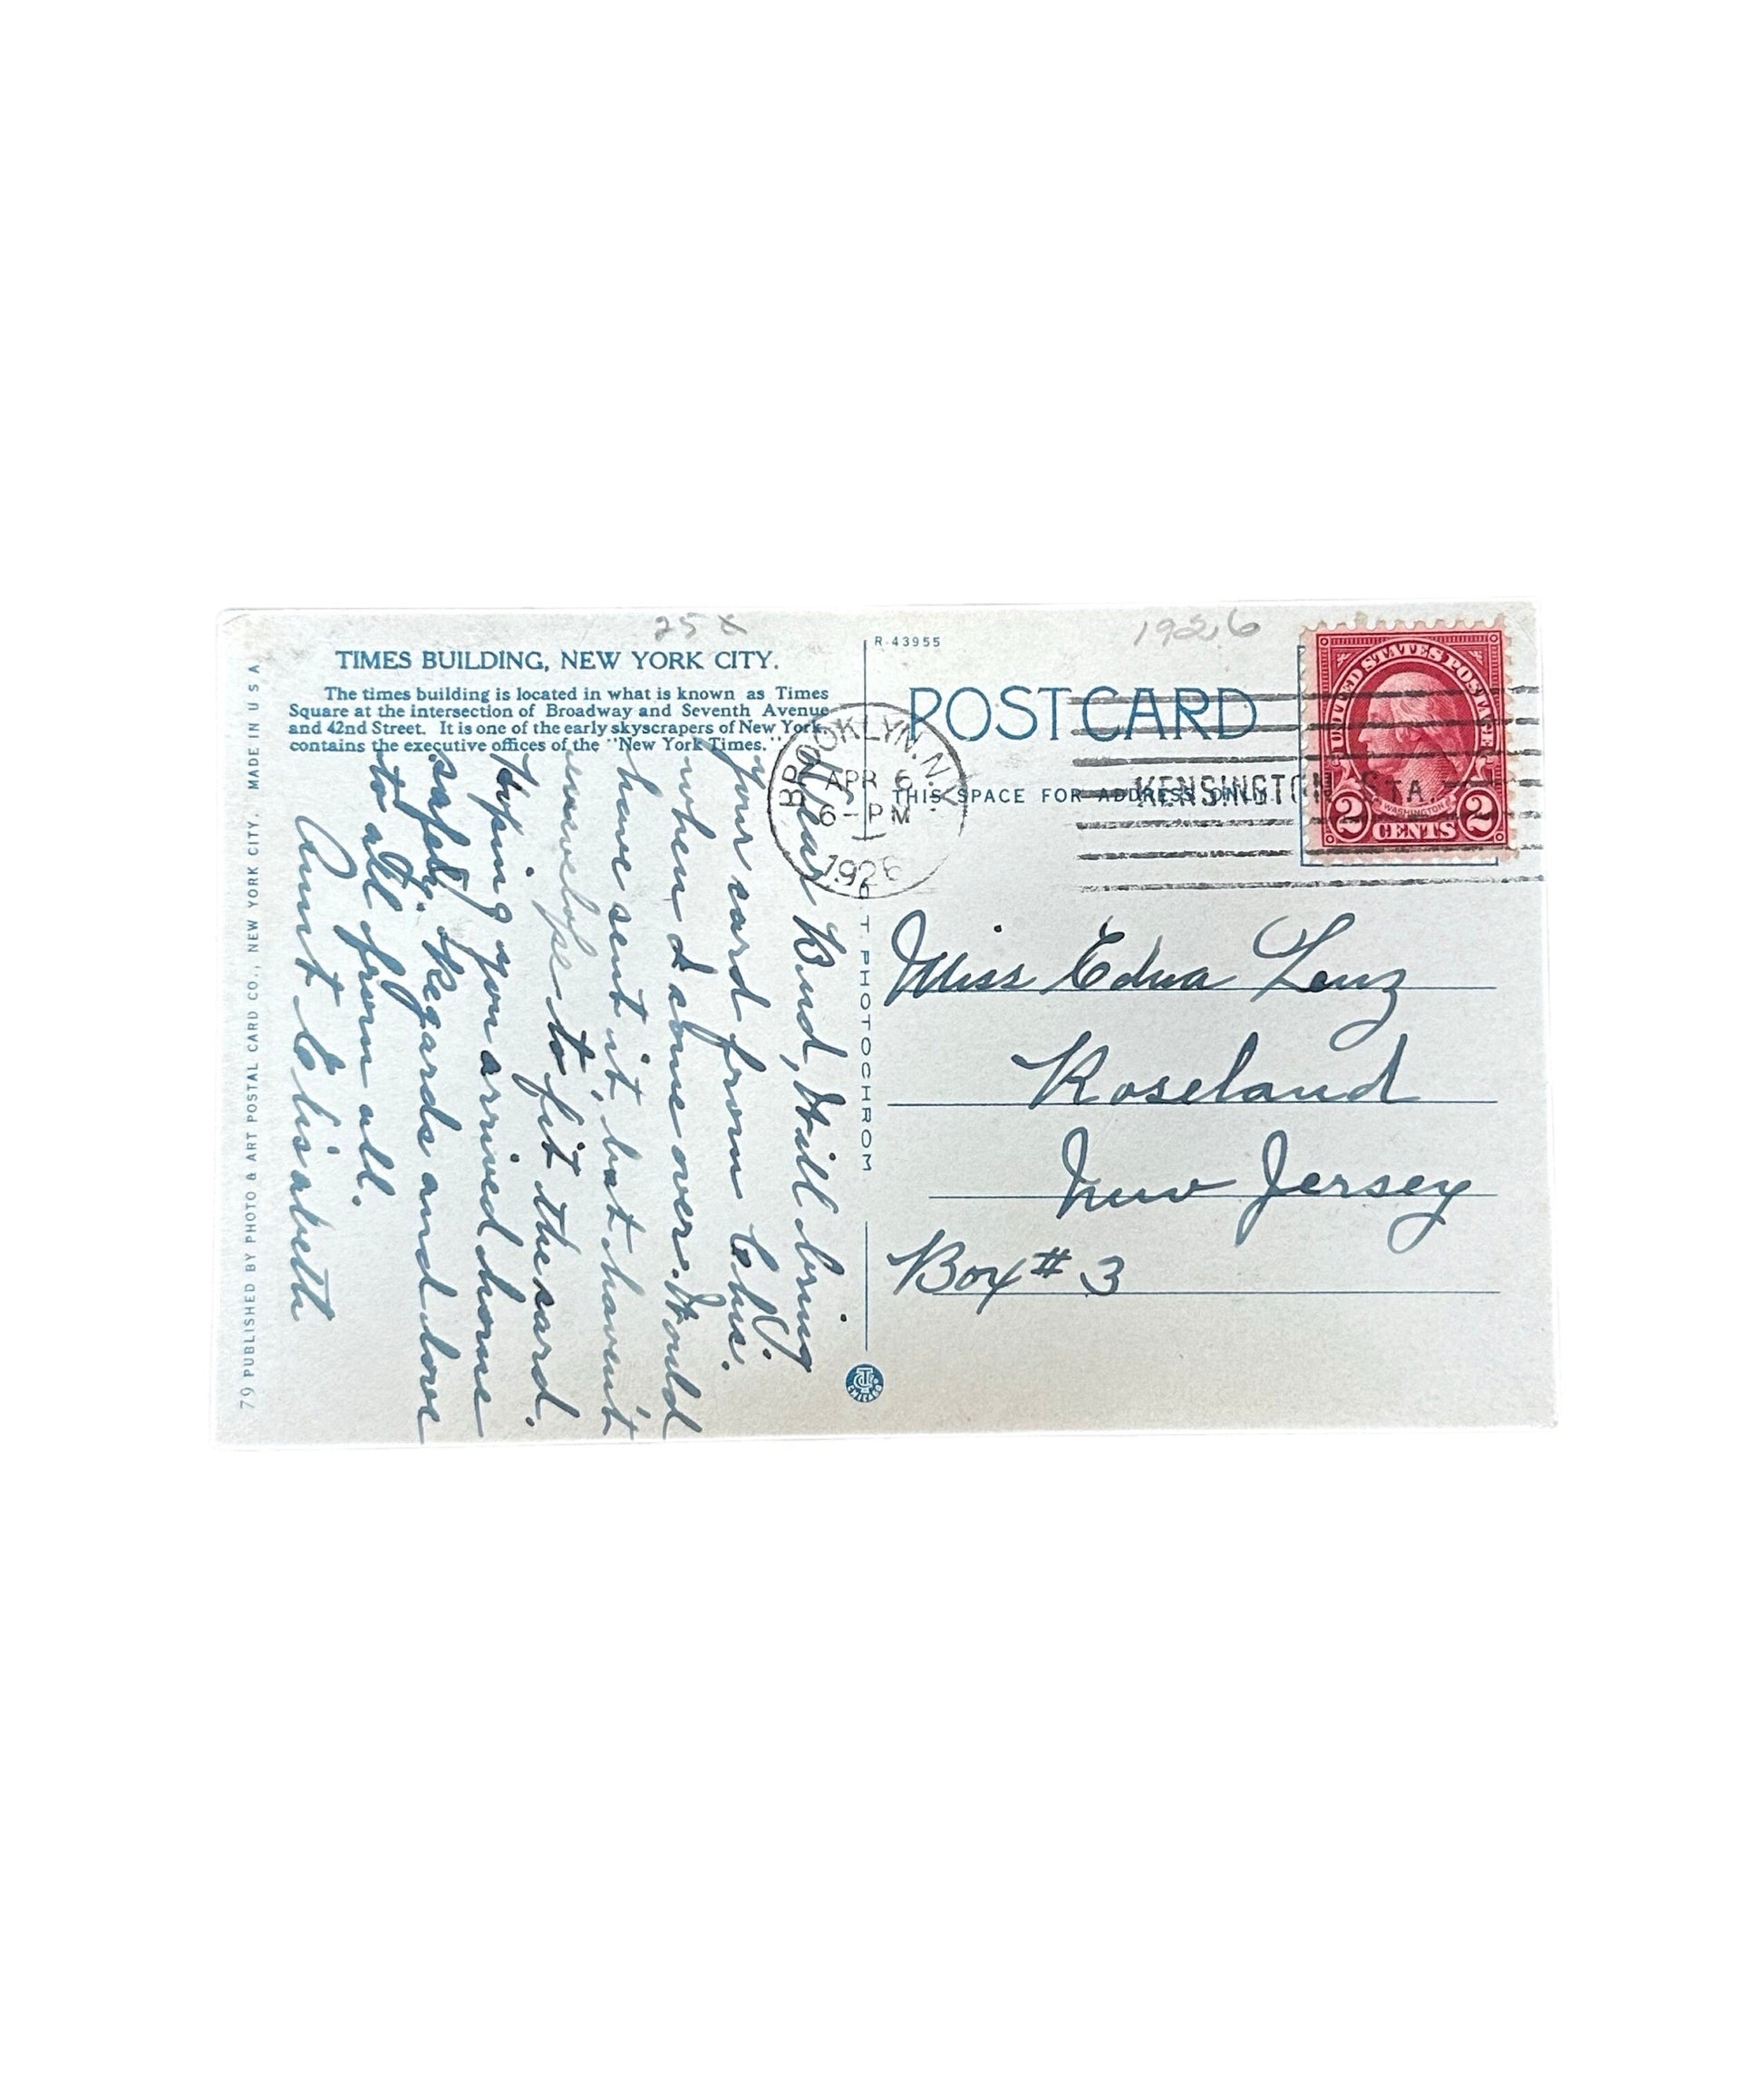 25¢
1926
TIMES BUILDING, NEW YORK CITY.
The times building is located in what is known as Times
Square at the intersection of Broadway and Seventh Avenue
and 42nd Street. It is one of the early skyscrapers of New York,
contains the executive offices of the "New York Times."
Dear Bud, Will bring
your card from Chas.
when I come over. Would
have sent it, but haven't
envelope to fit the card.
Hoping you arrived home
safely. Regards and love
to all from all.
Aunt Elisabeth
79 PUBLISHED BY PHOTO & ART POSTAL CARD CO., NEW YORK CITY. MADE IN U S A
R-43955
POST CARD
THIS SPACE FOR ADDRESS ONLY.
BROOKLYN, N.Y.
APR 6
6-PM
1926
KENSINGTON STA.
UNITED STATES POSTAGE
WASHINGTON
2 CENTS 2
T PHOTOCHROM
CHICAGO
Miss Edna Lenz
Roseland
New Jersey
Box # 3